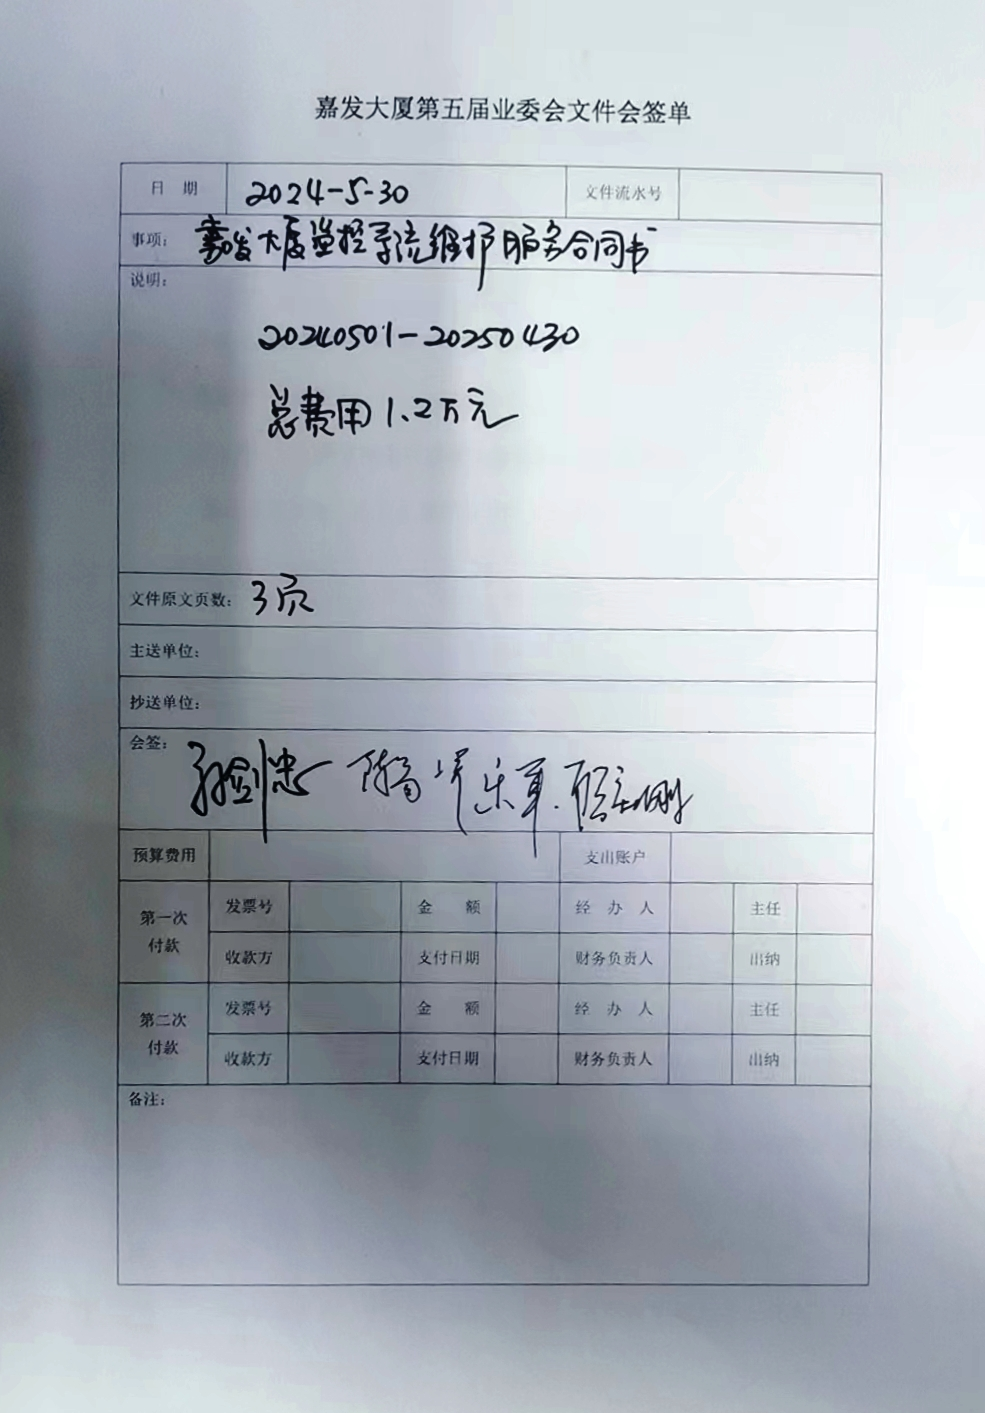 嘉发大厦第五届业委会文件会签单
日 期 2024-5-30 文件流水号
事项: 嘉发大厦监控系统维护服务合同书
说明:
20240501-20250430
总费用1.2万元
文件原文页数: 3页
主送单位:
抄送单位:
会签: 孙剑忠
预算费用 支出账户
第一次付款 发票号 金 额 经 办 人 主任
收款方 支付日期 财务负责人 出纳
第二次付款 发票号 金 额 经 办 人 主任
收款方 支付日期 财务负责人 出纳
备注: